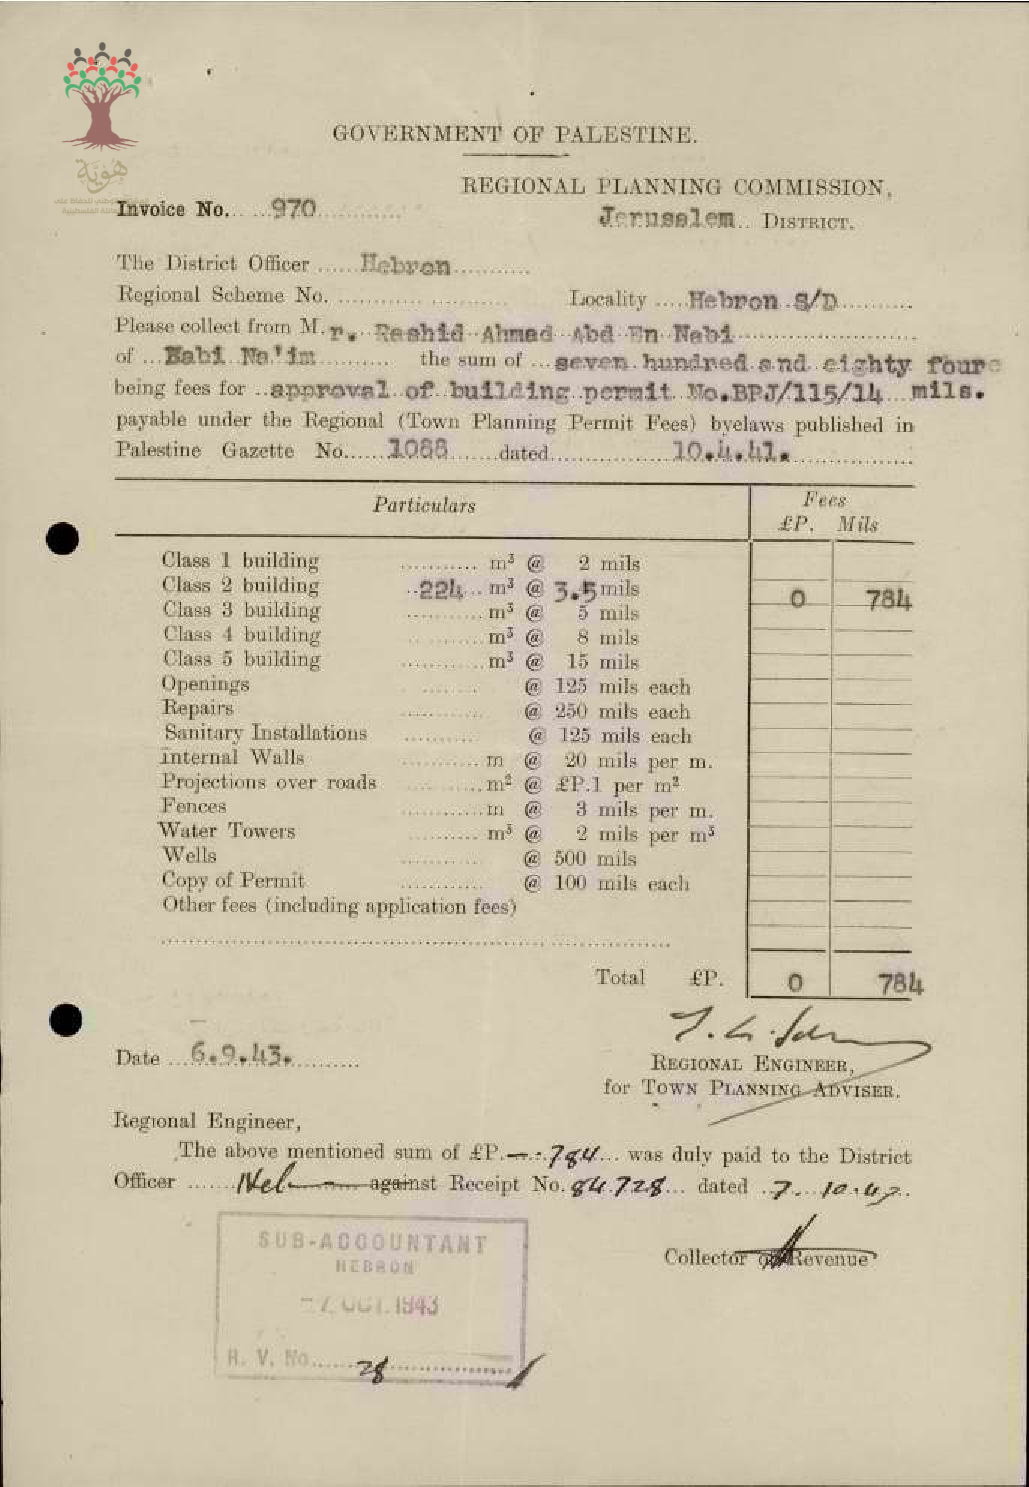 هوية
GOVERNMENT OF PALESTINE.
REGIONAL PLANNING COMMISSION,
Invoice No. 970
Jerusalem DISTRICT.
The District Officer Hebron
Regional Scheme No. Locality Hebron S/D
Please collect from Mr. Rashid Ahmad Abd En Nabi
of Nabi Na'im the sum of seven hundred and eighty four
being fees for approval of building permit No.BPJ/115/14 mils.
payable under the Regional (Town Planning Permit Fees) byelaws published in
Palestine Gazette No. 1088 dated 10.4.41.
Particulars Fees
£P. Mils
Class 1 building m³ @ 2 mils
Class 2 building 224 m³ @ 3.5 mils 0 784
Class 3 building m³ @ 5 mils
Class 4 building m³ @ 8 mils
Class 5 building m³ @ 15 mils
Openings @ 125 mils each
Repairs @ 250 mils each
Sanitary Installations @ 125 mils each
Internal Walls m @ 20 mils per m.
Projections over roads m² @ £P.1 per m²
Fences m @ 3 mils per m.
Water Towers m³ @ 2 mils per m³
Wells @ 500 mils
Copy of Permit @ 100 mils each
Other fees (including application fees)
Total £P. 0 784
Date 6.9.43.
REGIONAL ENGINEER,
for TOWN PLANNING ADVISER.
Regional Engineer,
The above mentioned sum of £P. —.784 was duly paid to the District
Officer against Receipt No. 84728 dated 7.10.43.
SUB-ACCOUNTANT
HEBRON
-7 OCT. 1943
R. V. No. 28
Collector of Revenue